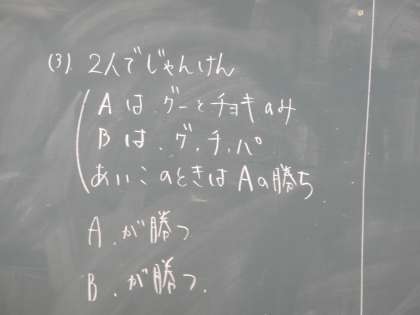 (3) 2人でじゃんけん
Aは.グーとチョキのみ
Bは.グ.チ.パ
あいこのときはAの勝ち
A.が勝つ
B.が勝つ.